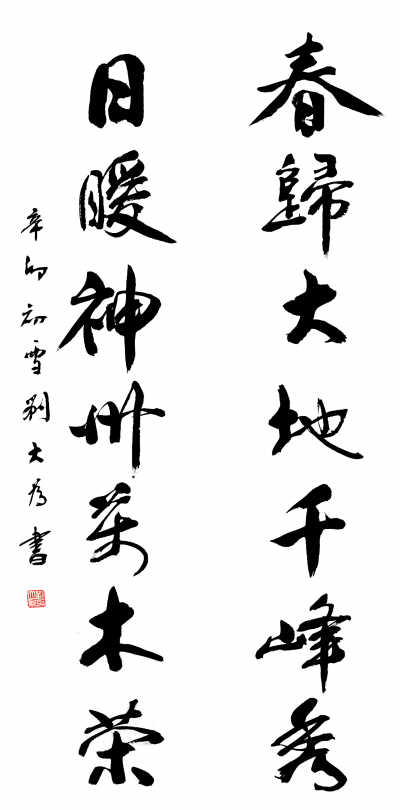 春歸大地千峰秀
日暖神州萬木荣
辛卯初雪劉大为書